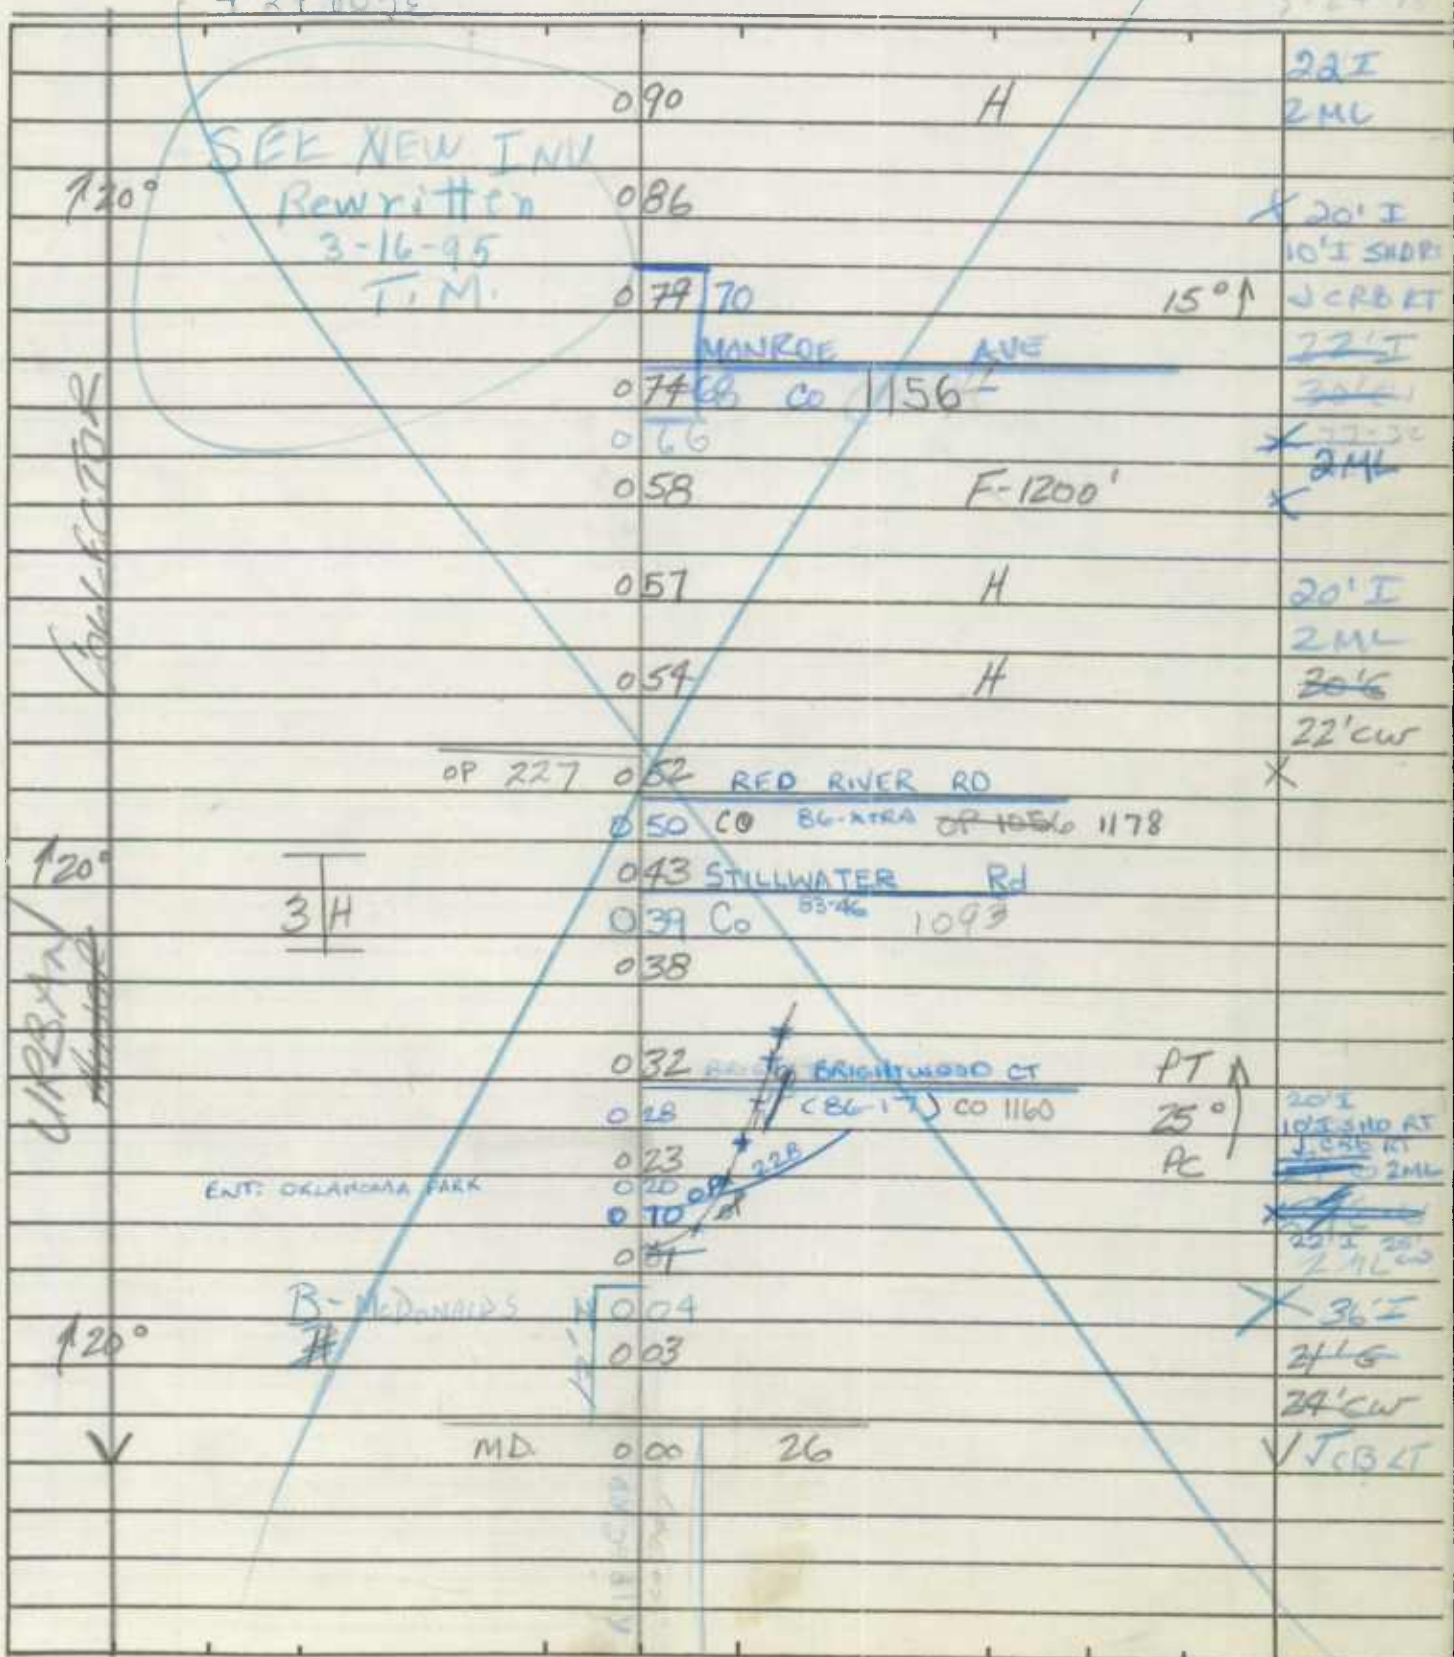 22'I
0 90 H 2 ML
SEE NEW INV
↑20° Rewritten 0 86 20'I
3-16-95 10'I SHDR
T.M. 0 79 70 15°↑ J CRB RT
MONROE AVE 22'I
0 74 68 CO 1156
0 66
2 ML
0 58 F-1200'
COLLECTOR
0 57 H 20'I
2 ML
0 54 H 20'G
22'CW
OP 227 0 52 RED RIVER RD X
0 50 CO 86-XTRA OP 1056 1178
↑20° 0 43 STILLWATER Rd
3 H 0 39 CO 83-46 1093
0 38
URBAN
0 32 BRIGHTWOOD CT PT
0 28 (86-17) CO 1160 25° 20'I
10'I SHD RT
J CRB RT
0 23 22B PC 2ML
ENT. OKLAHOMA PARK 0 20 OP
0 10
22'I
2 ML
B-McDONALDS 0 04 36'I
↑20° H 0 03 21'G
24'CW
MD. 0 00 26 J CB LT